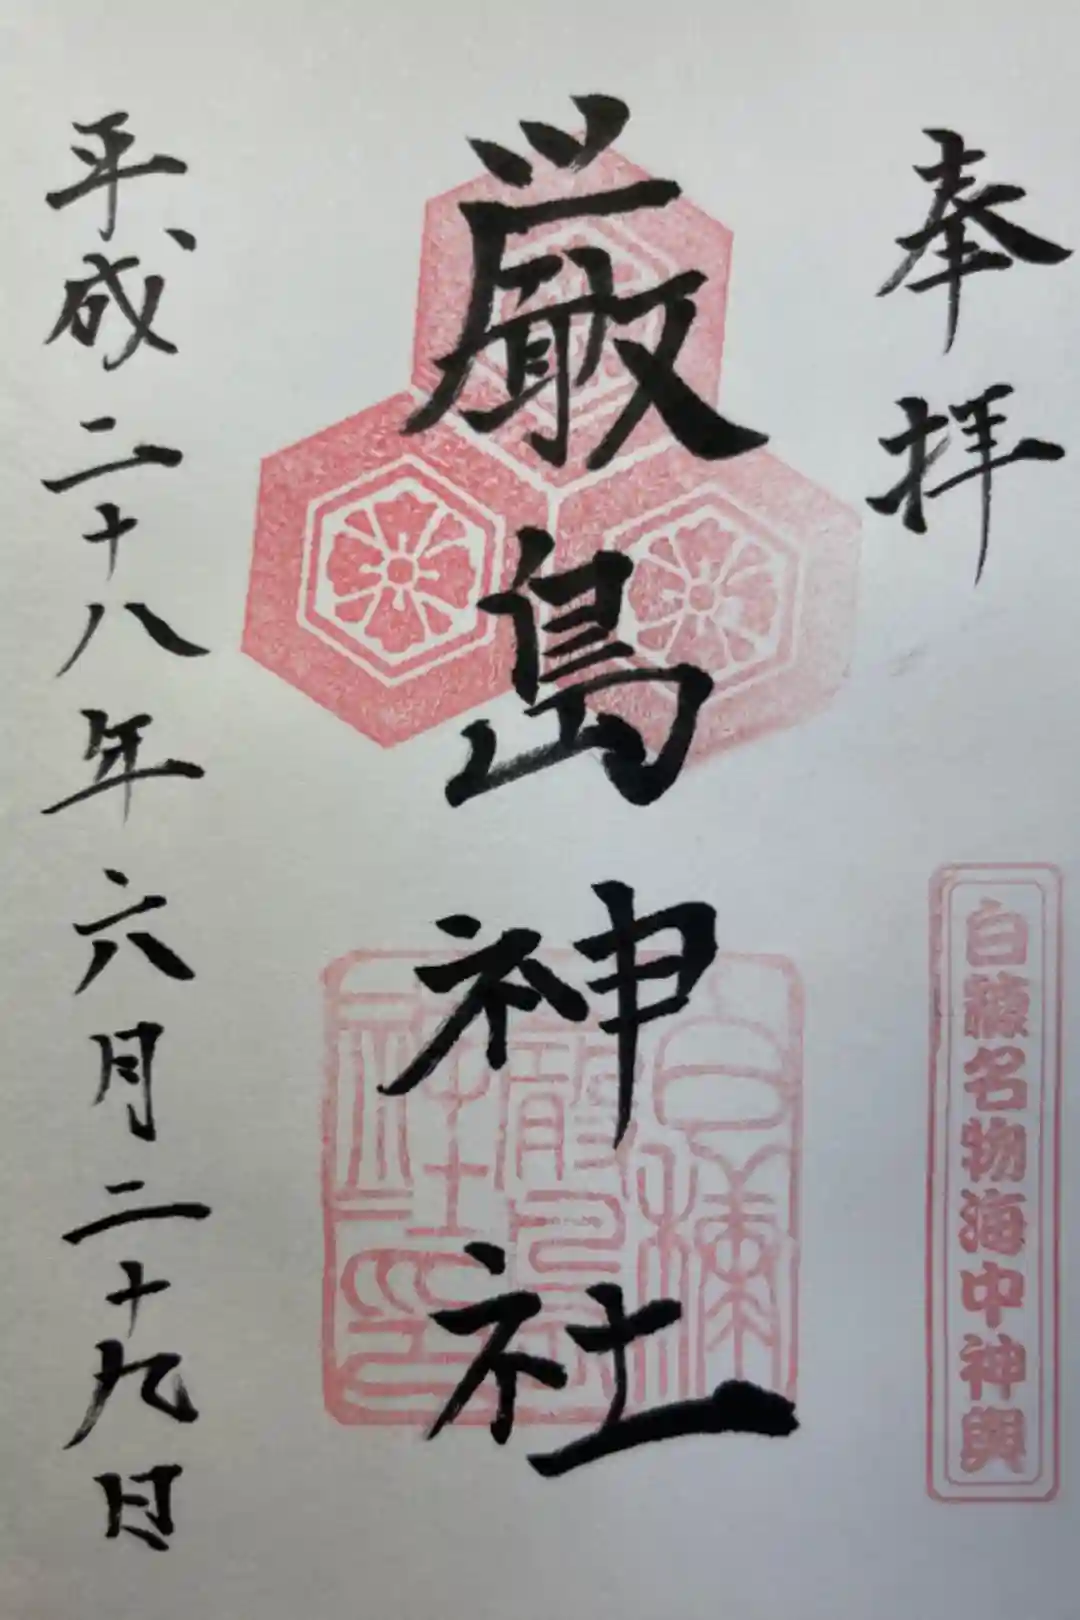 奉拝
白糠名物海中神輿
厳島神社
白糠厳島神社印
平成二十八年六月二十九日